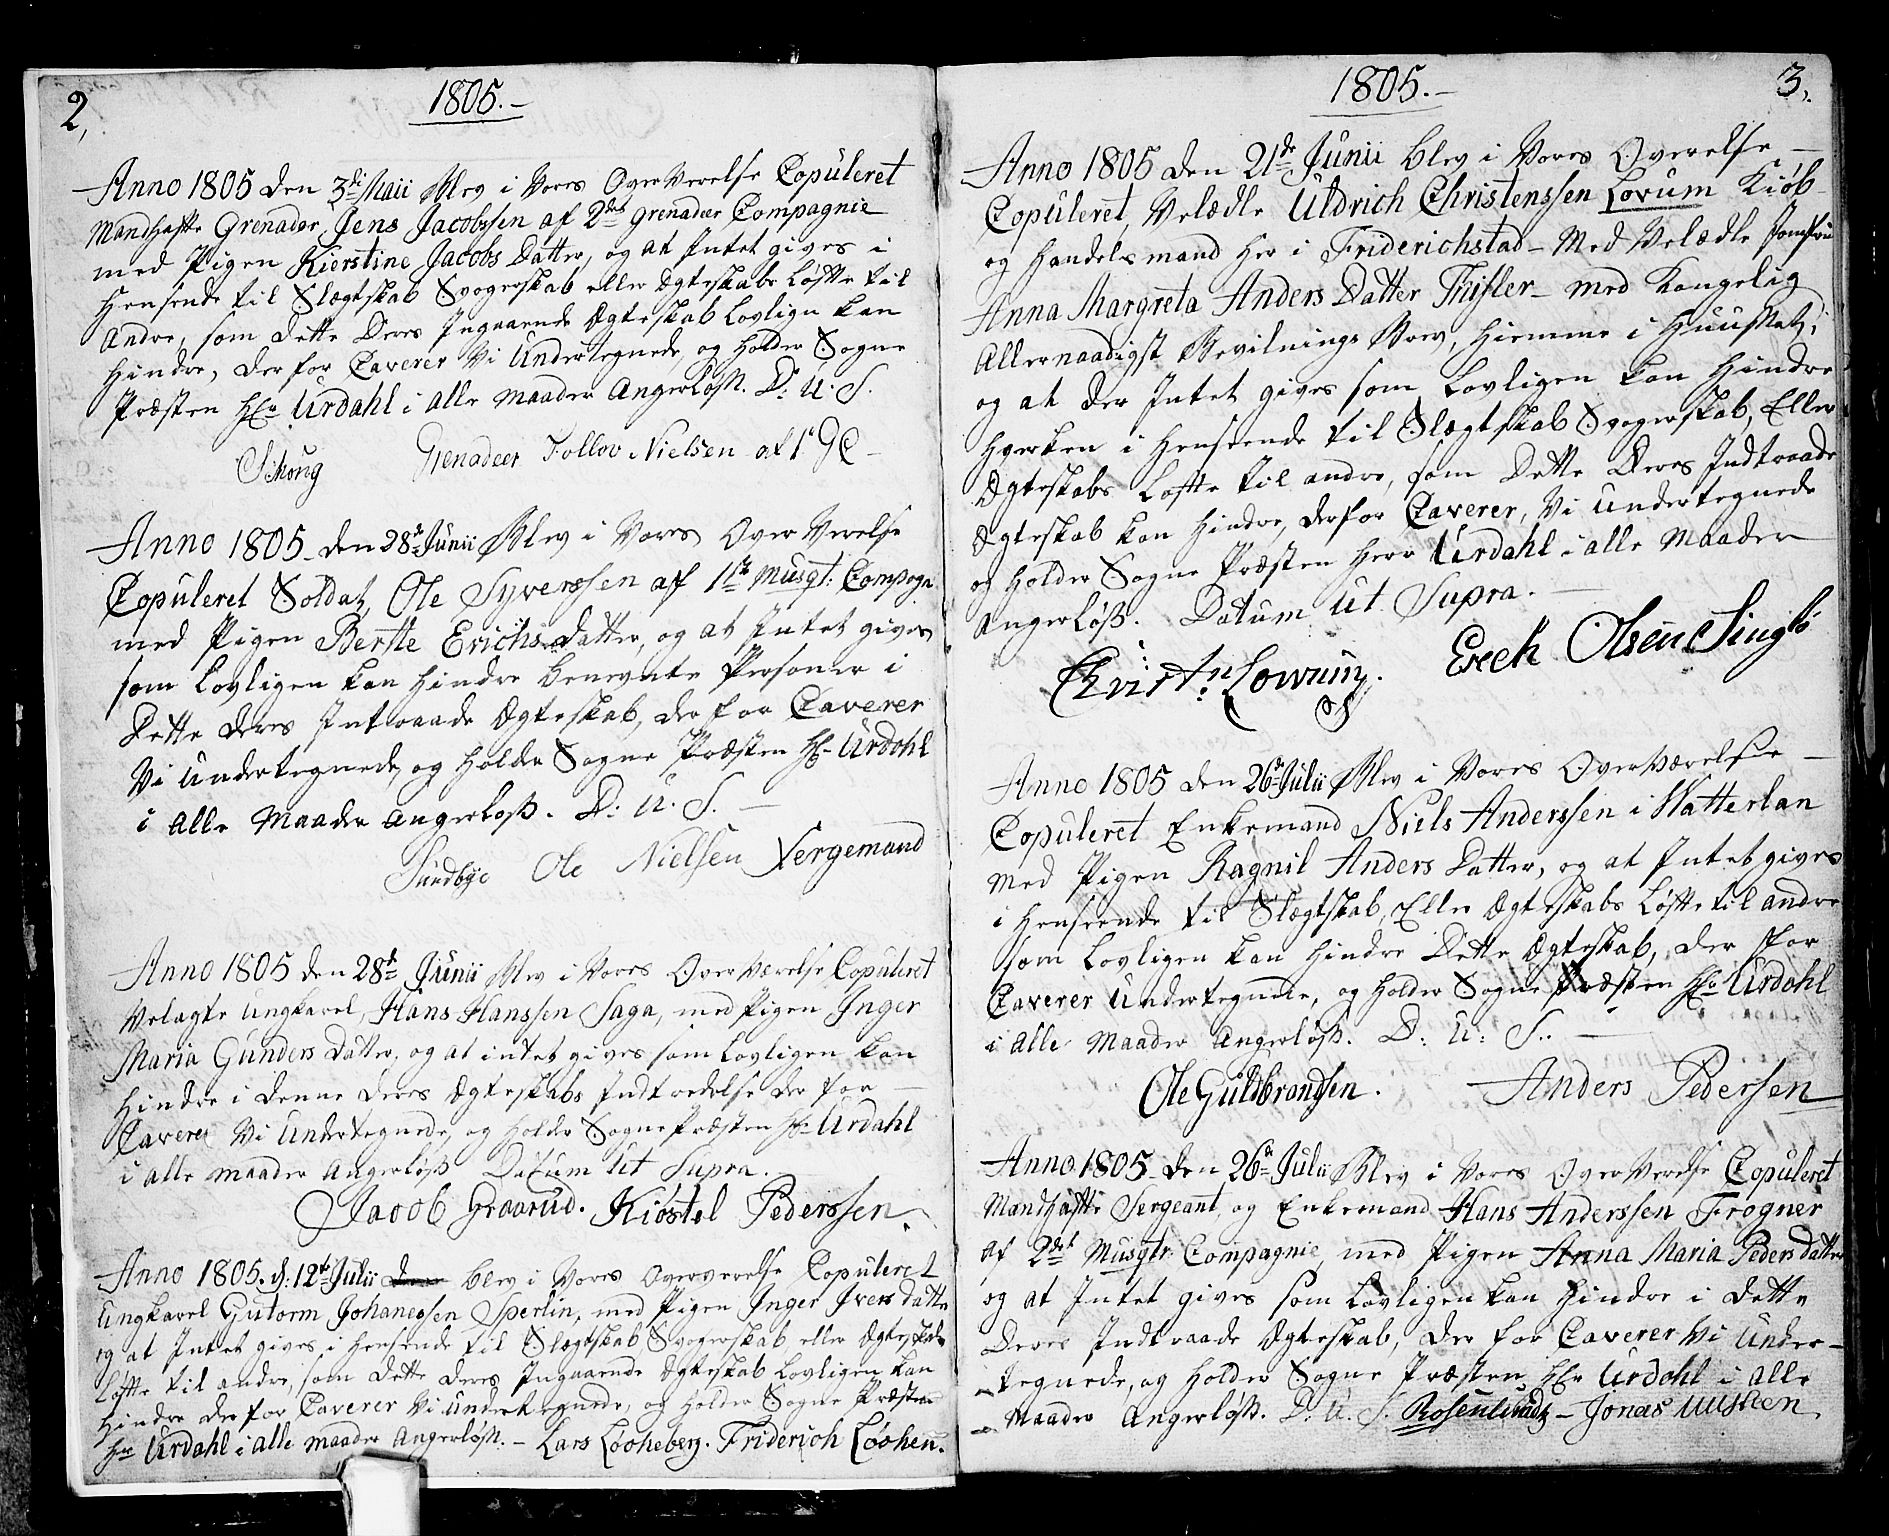 2,
1805.-
Anno 1805 den 3di Maii Blev i Vores OverVerelse Copuleret
Mandhafte Grenader, Jens Jacobssen af 2det Grenadeer Compagnie
med Pigen Kierstine Jacobs Datter, og at Intet gives i
Hensende til Slægtskab Svogerskab eller Ægteskabs Løfte til
Andre, som dette Deres Ingaaende Ægteskab Lovlign kan
Hindre, derfor Caverer Vi Undertegnede, og holder Sogne
Præsten Hr. Urdahl i alle maader Angerløß. D: U: S.
Schoug Grenadeer Tollov Nielsen af 1te GC -
Anno 1805 den 28de Junii Blev i Vores Over Verelse
Copuleret Soldat, Ole Syverssen af 1ste Musqt: Compagn
med Pigen Berthe Erichs datter, og at Intet gives
som Lovligen kan Hindre benevnte Personer i
Dette Deres Intraade Ægteskab, der for Caverer
Vi Undertegnede, og holder Sogne Præsten Hr. Urdahl
i alle Maader angerløß. D: U. S. -
Sundbye Ole Nielsen Vergemand
Anno 1805 den 28de Junii Blev i Vores OverVærelse Copuleret
Velagte ungkarel, Hans Hanssen Saga, med Pigen Inger
Maria Gunders datter, og at intet gives som Lovligen kan
Hindre i denne deres Ægteskabs Indtrædelse der for -
Caverer Vi Undertegnede, og holder Sogne Præsten Hr. Urdahl
i alle maader Angerløß Datum Ut Supra.
Jacob Graarud. Kiøstel Pederssen.
Anno 1805. d: 12te Julii blev i Vores Oververelse Copuleret
Ungkarel Gutorm Johanessen Sperlin, med Pigen Inger Ivers datter
og at Intet gives, i Hensende til Slægtskab Svogerskab eller Ægteskabs
Løfte til andre, som dette deres Ingaaende Ægteskab Lovligen kan
Hindre der for Caverer Vi Undertegnede, og holder Sogne Præsten
Hr Urdahl i alle maader Angerløß. - Lars Løcheberg. Friderich Løchen.
1805.-
3,
Anno 1805 den 21de Junii blev i Vores Overelse -
Copuleret, Velædle Uldrich Christenssen Lorum Kiøb-
og Handelsmand her i Friderichstad - Med Velædle Jomfrue
Anna Margreta Anders Datter Thisler - med Kongelig
Allernaadigst Bevilnings Brev, hiemme i Huuset,
og at der Intet gives som Lovligen kan Hindre
Hverken i Henseende til Slægtskab Svogerskab, Eller
Ægteskabs Løfte til andre, som Dette Deres Indtraade
Ægteskab kan Hindre, derfor Caverer, Vi Undertegnede
og holder Sogne Præsten Herr Urdahl i alle Maader
Angerløß. Datum Ut Supra. -
Christn: Lowum. Erek Olsen
Anno 1805 den 26de Julii Blev i Vores OverVærelse -
Copuleret Enkemand Niels Anderssen i Hatterlan
med Pigen Ragnil Anders Datter, og at Intet gives
i Henseende til Slægtskab, Eller Ægteskabs Løfte til andre
som Lovligen kan Hindre Dette Ægteskab, der for
Caverer Undertegnete, og holder Sogne Præsten Hr. Urdahl
i alle Maader Angerløß. D: U: S.. -
Ole Guldbrandsen. Anders Pedersen
Anno 1805 - den 26de Julii Blev i Vores OverVerelse Copuleret
Mandhafte Sergeant, og Enkemand Hans Anderssen Frogner
af 2det Musqtr Compagnie, med Pigen Anna Maria Peders datter
og at Intet gives som Lovligen kan Hindre i dette
Deres Indtraade Ægteskab, Der for Caverer Vi Under-
tegnede, og holder Sogne Præsten Hr Urdahl i alle
Maader Angerløß. D: U. S. Rosenlund - Jonas